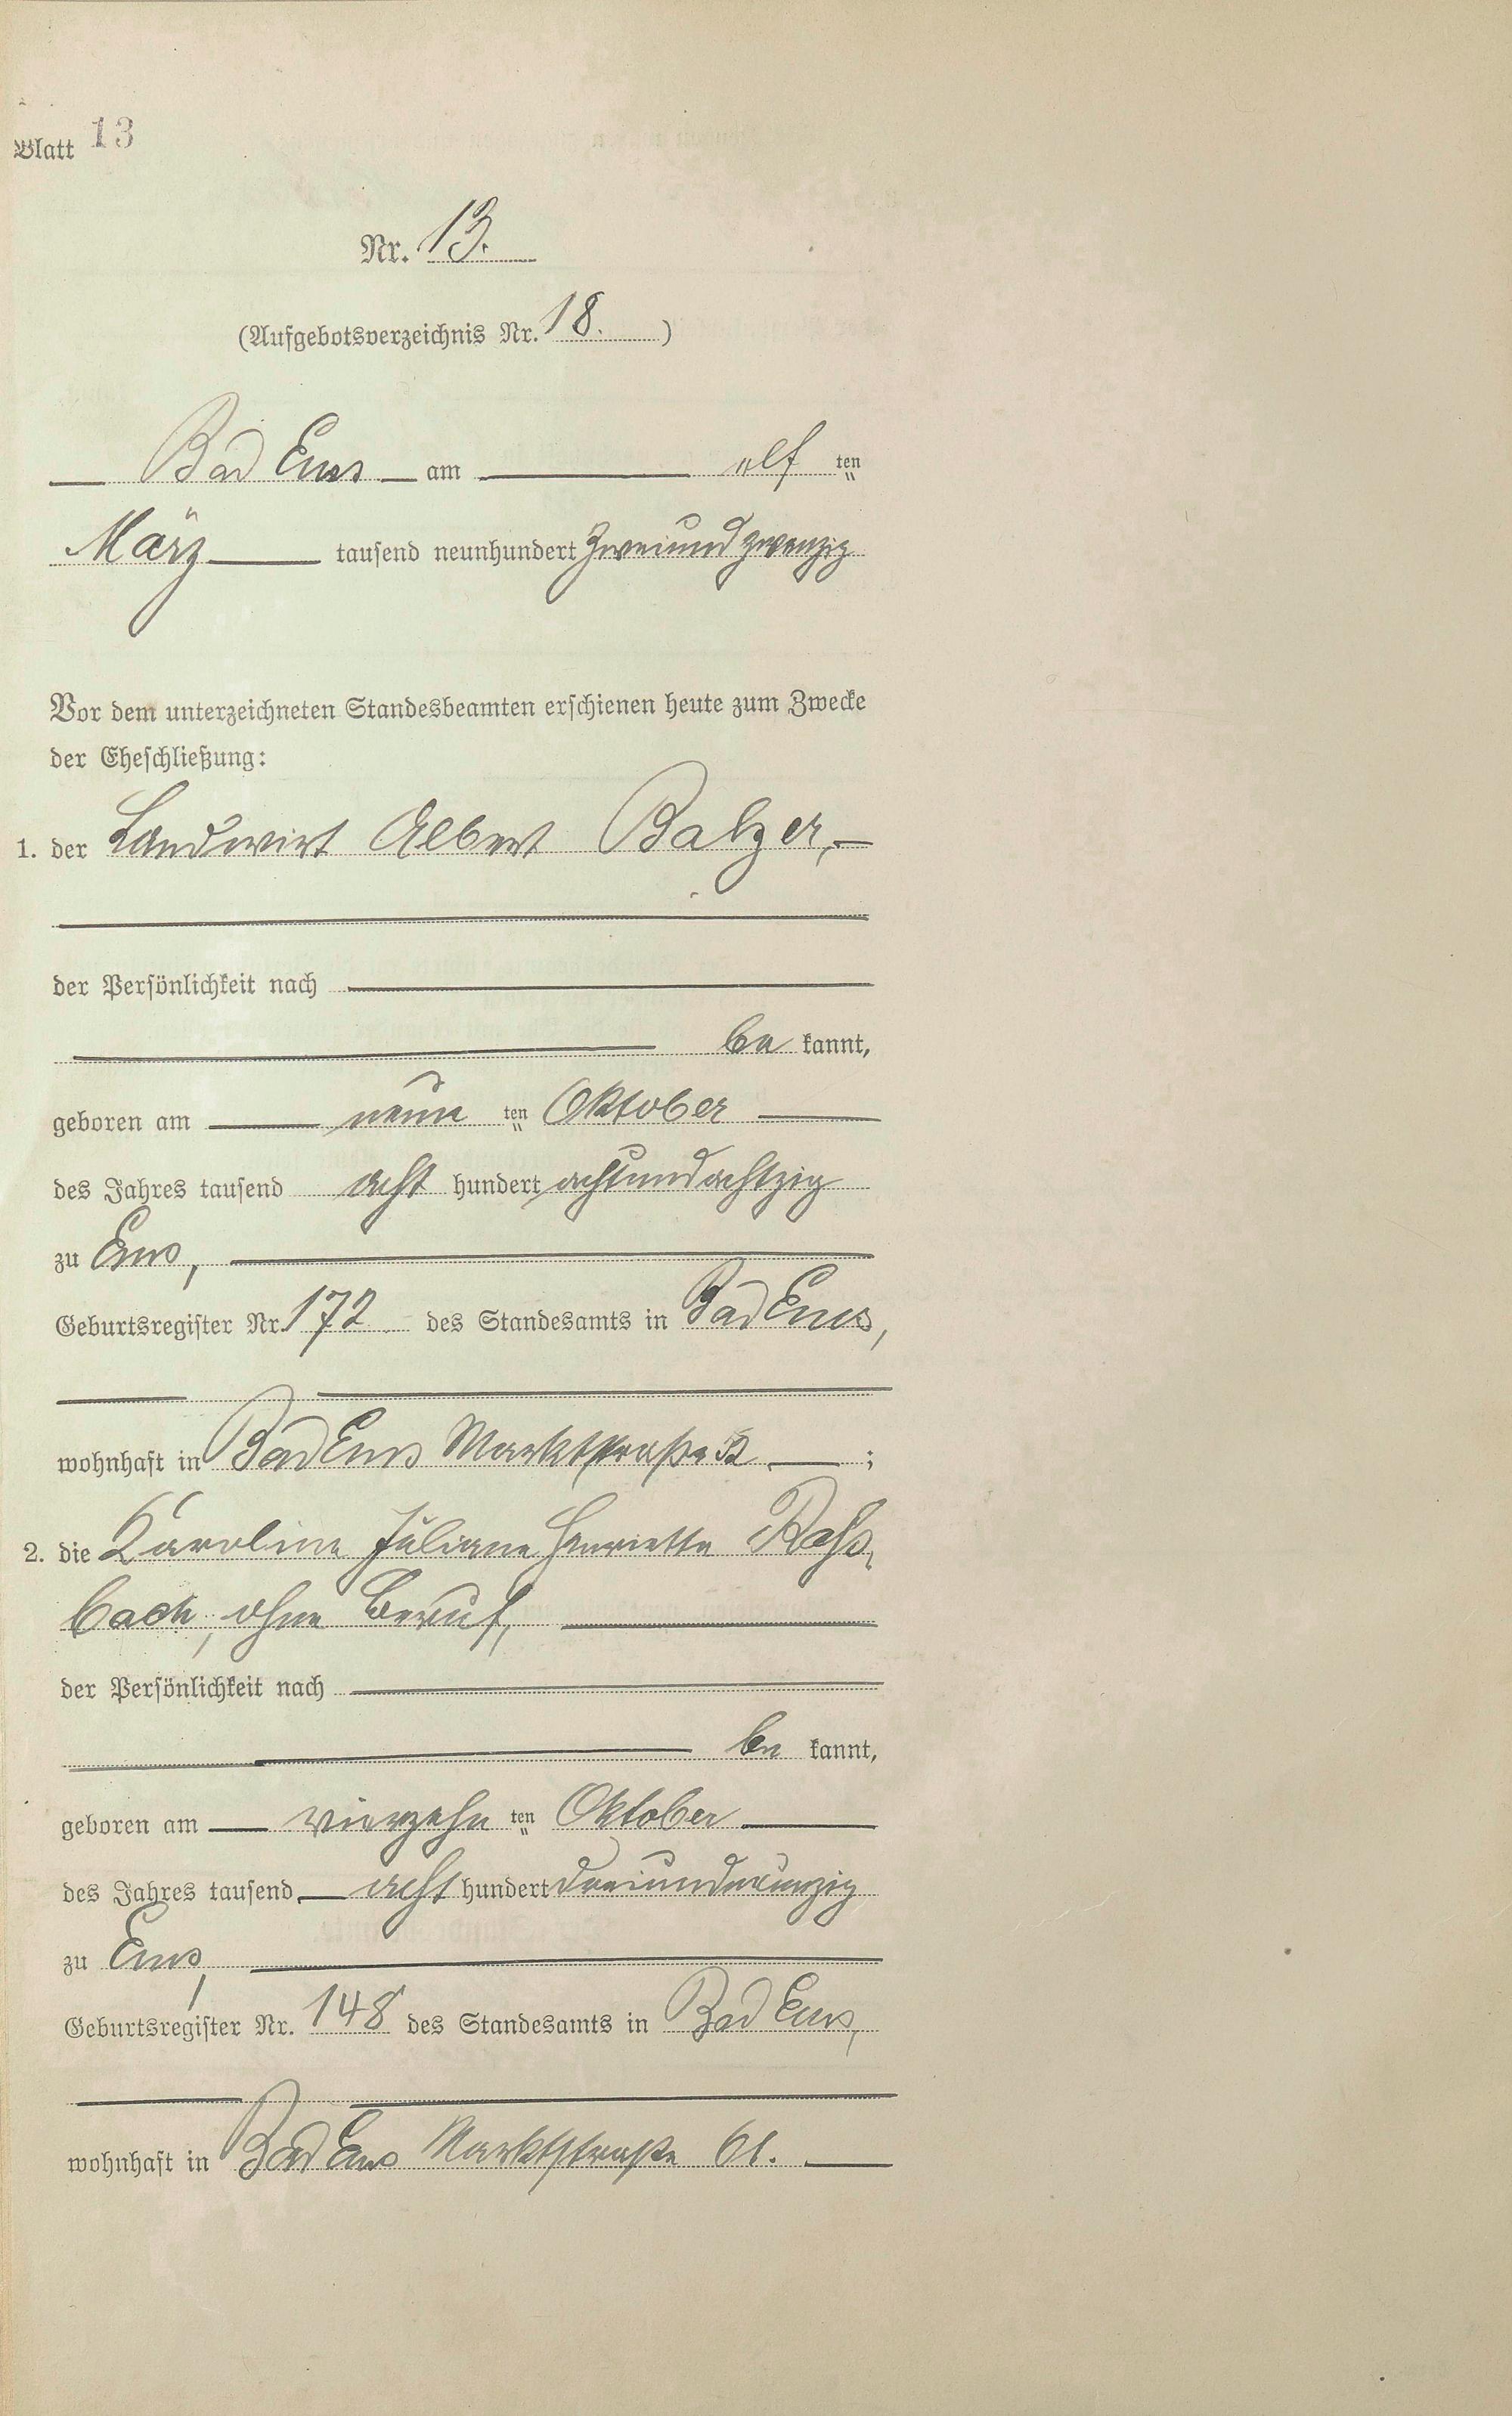 Blatt 13
Nr. 13.
(Aufgebotsverzeichnis Nr. 18.)
Bad Ems am elf ten
März tausend neunhundert zweiundzwanzig
Vor dem unterzeichneten Standesbeamten erschienen heute zum Zwecke
der Eheschließung:
1. der Landwirt Albert Balzer,
der Persönlichkeit nach
be kannt,
geboren am neun ten Oktober
des Jahres tausend acht hundert achtundachtzig
zu Ems,
Geburtsregister Nr. 172 des Standesamts in Bad Ems,
wohnhaft in Bad Ems Marktstraße ;
2. die Karoline Juliane Henriette
bach, ohne Beruf,
der Persönlichkeit nach
be kannt,
geboren am vierzehn ten Oktober
des Jahres tausend acht hundert dreiundneunzig
zu Ems,
Geburtsregister Nr. 148 des Standesamts in Bad Ems,
wohnhaft in Bad Ems Marktstraße 61.